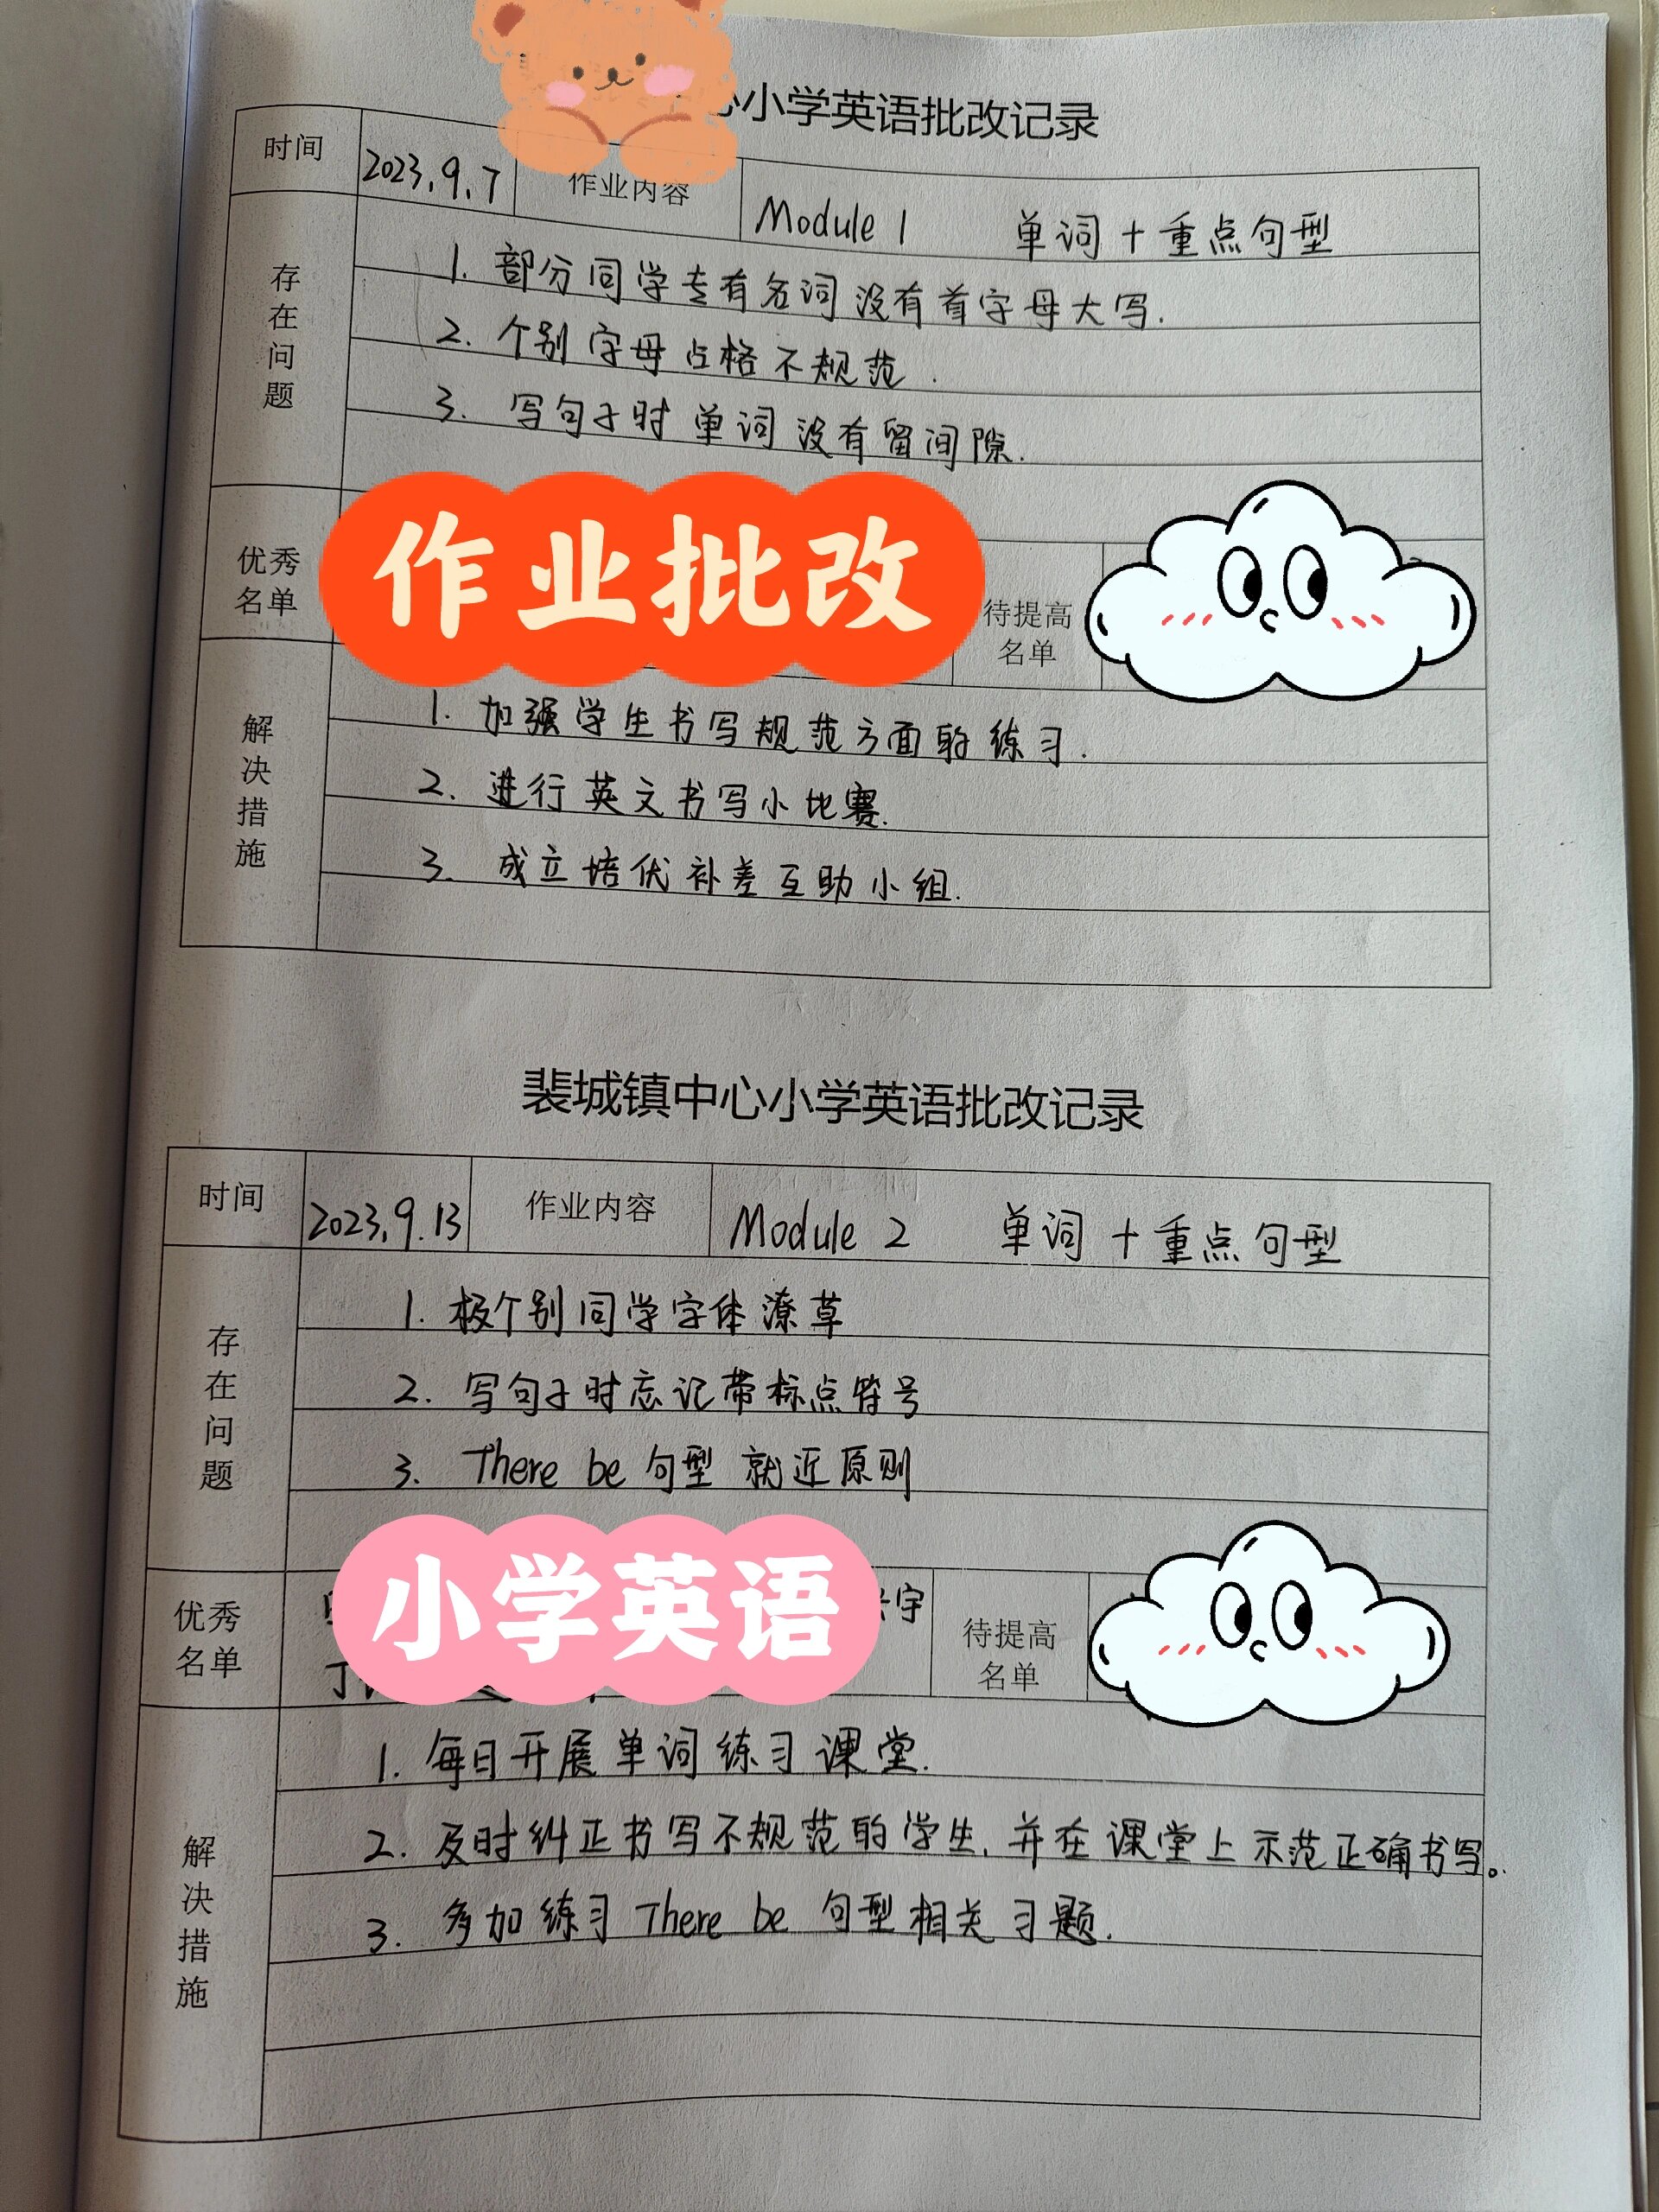 心小学英语批改记录
时间 2023.9.7 作业内容 Module 1 单词+重点句型
存在问题
1. 部分同学专有名词没有首字母大写.
2. 个别字母占格不规范.
3. 写句子时单词没有留间隙.
作业批改
优秀名单
待提高名单
解决措施
1. 加强学生书写规范方面的练习.
2. 进行英文书写小比赛.
3. 成立培优补差互助小组.
裴城镇中心小学英语批改记录
时间 2023.9.13 作业内容 Module 2 单词+重点句型
存在问题
1. 极个别同学字体潦草
2. 写句子时忘记带标点符号
3. There be 句型 就近原则
小学英语
优秀名单 宇
丁
待提高名单
解决措施
1. 每日开展单词练习课堂.
2. 及时纠正书写不规范的学生,并在课堂上示范正确书写。
3. 多加练习 There be 句型相关习题.